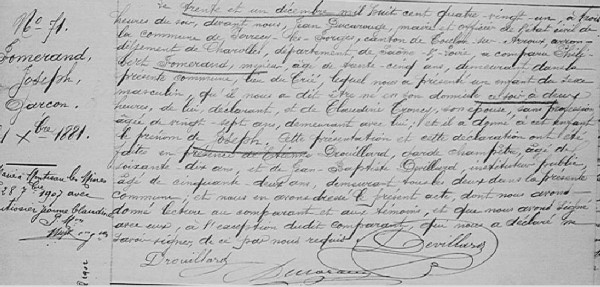 No 71.
Pomerand,
Joseph,
Garçon.
31 Xbre 1881.
Marié à Montceau les Mines
28 7bre 1907 avec
Jeanne Claudine
trente et un décembre mil huit cent quatre-vingt-un, à trois
heures du soir, devant nous, Jean Ducarouge, maire et officier de l'état civil de
la commune de les Forges, canton de Toulon-sur-Arroux, arron-
dissement de Charolles, département de Saône et Loire, a comparu Phili-
bert Pomerand, mineur, âgé de trente-cinq ans, demeurant dans la
présente commune, lieu de lequel nous a présenté un enfant du sexe
masculin, qu'il nous a dit être né en son domicile à deux
heures, de lui déclarant, et de Claudine son épouse, sans profession,
âgée de vingt-sept ans, demeurant avec lui, et il a donné à cet enfant
le prénom de Joseph. Cette présentation et cette déclaration ont été
faites en présence de Etienne Drouillard, garde champêtre, âgé de
soixante dix ans, et de Jean-Baptiste Devillard, instituteur public,
âgé de cinquante-deux ans, demeurant tous les deux dans la présente
commune; et nous en avons dressé le présent acte, dont nous avons
donné lecture au comparant et aux témoins, et que nous avons signé
avec eux, à l'exception dudit comparant, qui nous a déclaré ne
savoir signer, de ce par nous requis. Devillard
Drouillard